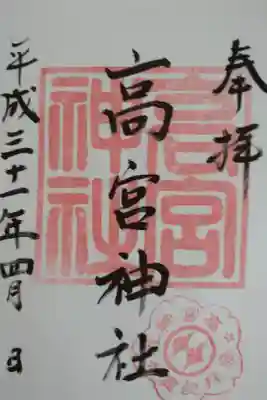 奉拝
高宮神社
平成三十一年四月 日
高宮
神社